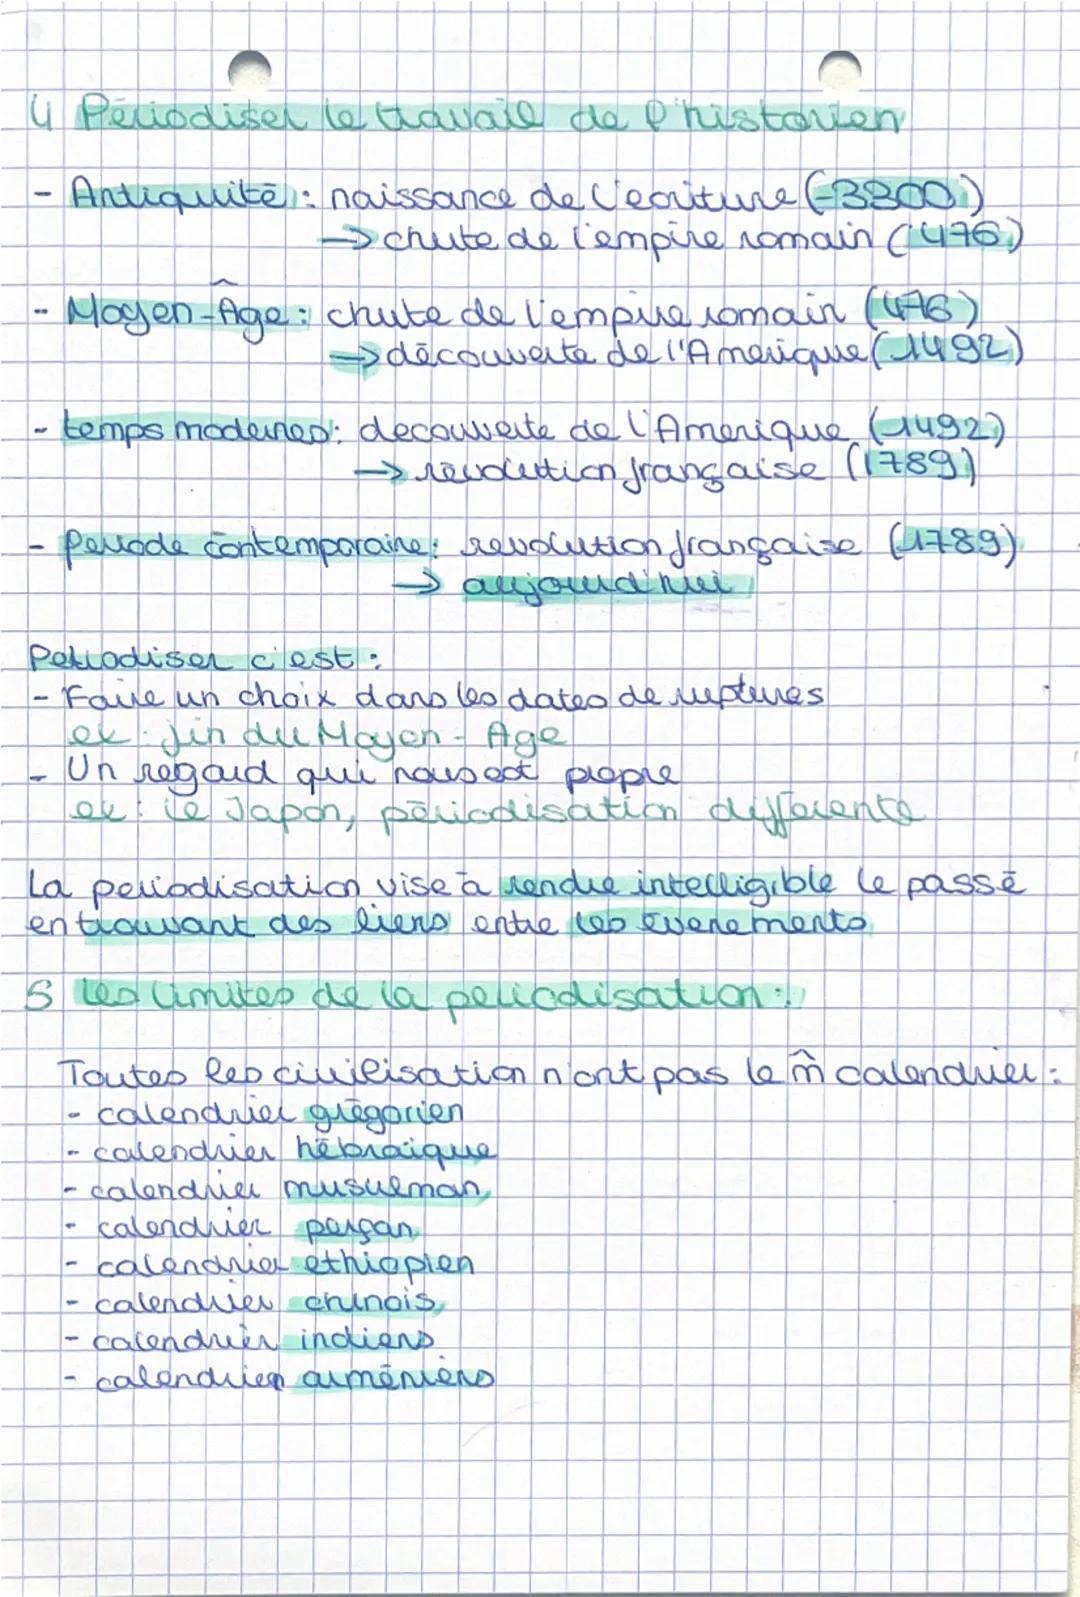 4 Périodiser le travail de l'historien
- Antiquité : naissance de l'ecriture (-3300)
→ chute de l'empire romain (476)
- Moyen-Âge : chute de l'empire romain (476)
→ découverte de l'Amerique (1492)
- temps modernes : decouverte de l'Amerique (1492)
→ revolution française (1789)
- periode contemporaine : revolution française (1789)
→ aujourd'hui
Periodiser c'est :
- Faire un choix dans les dates de ruptures
ex : fin du Moyen-Age
- Un regard qui nous est propre
ex : le Japon, périodisation différente
La periodisation vise à rendre intelligible le passé
en trouvant des liens entre les evenements
5 les limites de la periodisation :
Toutes les civilisation n'ont pas le m̂ calendrier :
- calendrier grégorien
- calendrier hébraïque
- calendrier musulman
- calendrier persan
- calendrier ethiopien
- calendrier chinois
- calendrier indiens
- calendrier arméniens